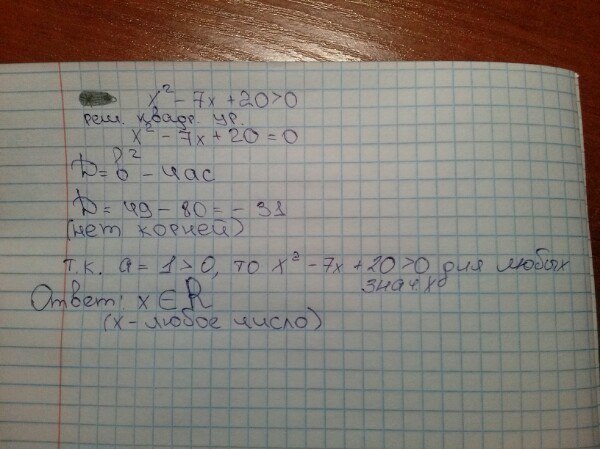 x² - 7x + 20 > 0
реш. квадр. ур.
x² - 7x + 20 = 0
D = b² - 4ac
D = 49 - 80 = - 31
(нет корней)
т.к. a = 1 > 0, то x² - 7x + 20 > 0 для любых
знач. x
Ответ: x ∈ R
(x - любое число)